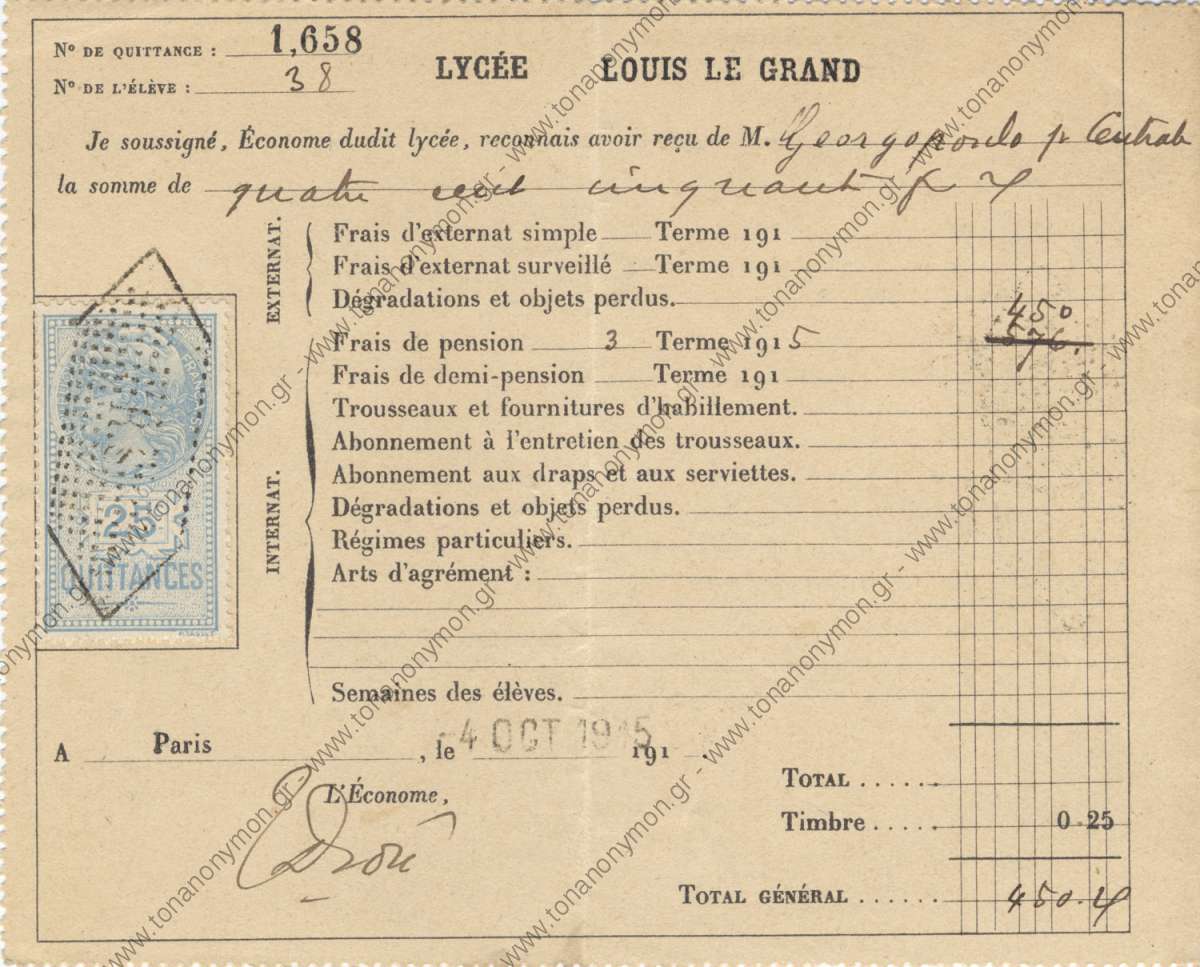 N° DE QUITTANCE : 1,658
N° DE L'ÉLÈVE : 38
LYCÉE LOUIS LE GRAND
Je soussigné, Économe dudit lycée, reconnais avoir reçu de M. Georgopoulo pr Centrale
la somme de quatre cent cinquante f
EXTERNAT.
Frais d'externat simple Terme 191
Frais d'externat surveillé Terme 191
Dégradations et objets perdus.
450
INTERNAT.
Frais de pension 3 Terme 1915 576.
Frais de demi-pension Terme 191
Trousseaux et fournitures d'habillement.
Abonnement à l'entretien des trousseaux.
Abonnement aux draps et aux serviettes.
Dégradations et objets perdus.
Régimes particuliers.
Arts d'agrément :
Semaines des élèves.
25
QUITTANCES
A Paris, le -4 OCT 1915 191
L'Économe,
TOTAL ......
Timbre ..... 0 25
TOTAL GÉNÉRAL ...... 450.
www.tonanonymon.gr - www.tonanonymon.gr - www.tonanonymon.gr